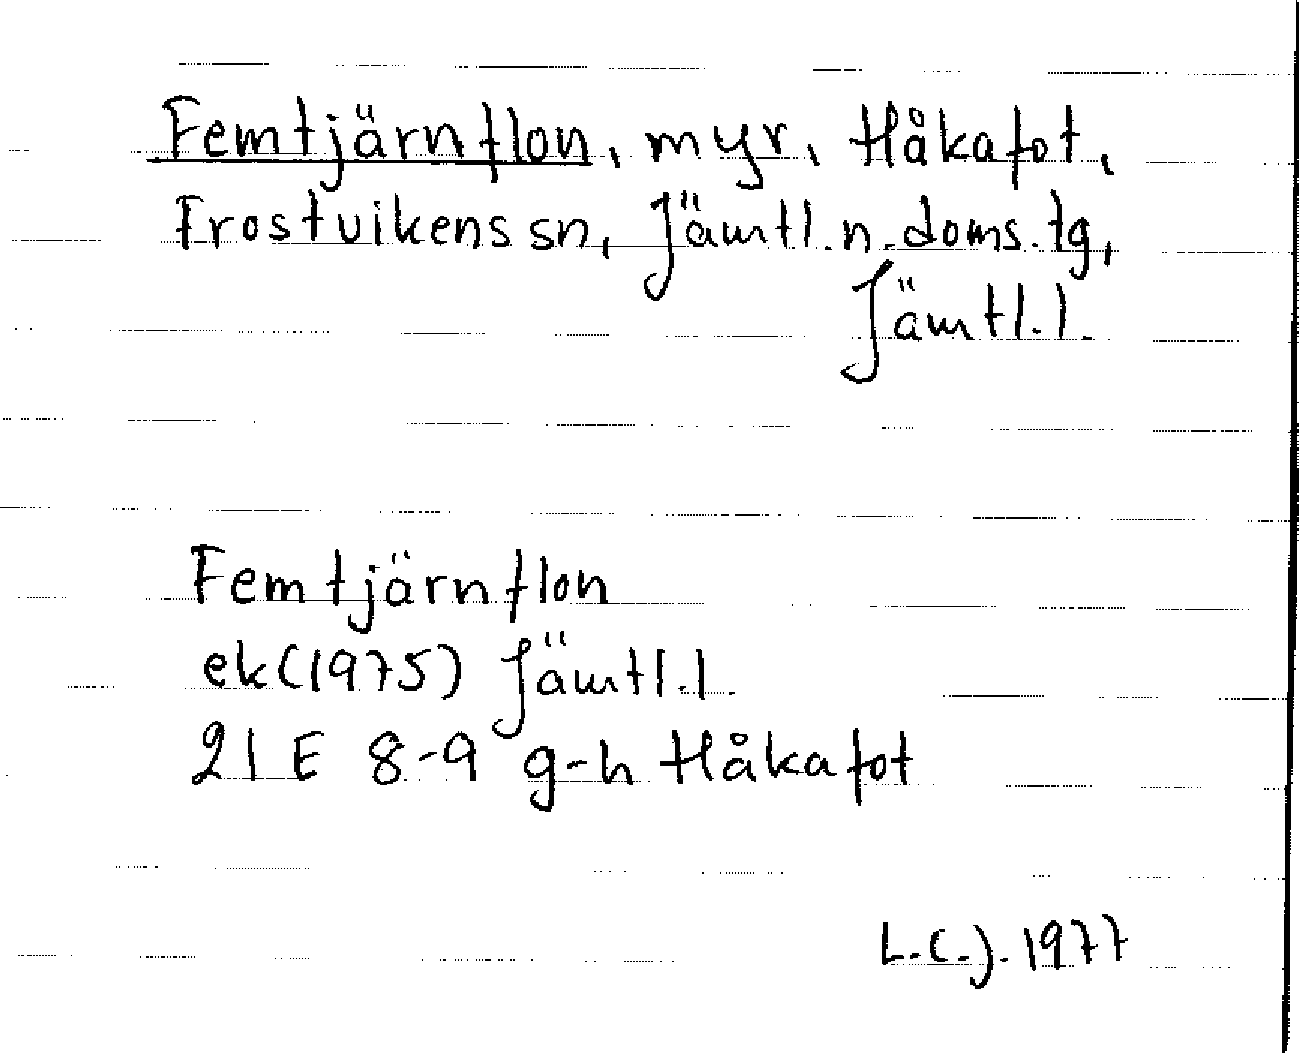 Femtjärnflon, myr, Håkafot,
Frostvikens sn, Jämtl. n. doms. tg,
Jämtl. l.
Femtjärnflon
ek (1975) Jämtl. l.
21 E 8-9 g-h Håkafot
L.C.J. 1977